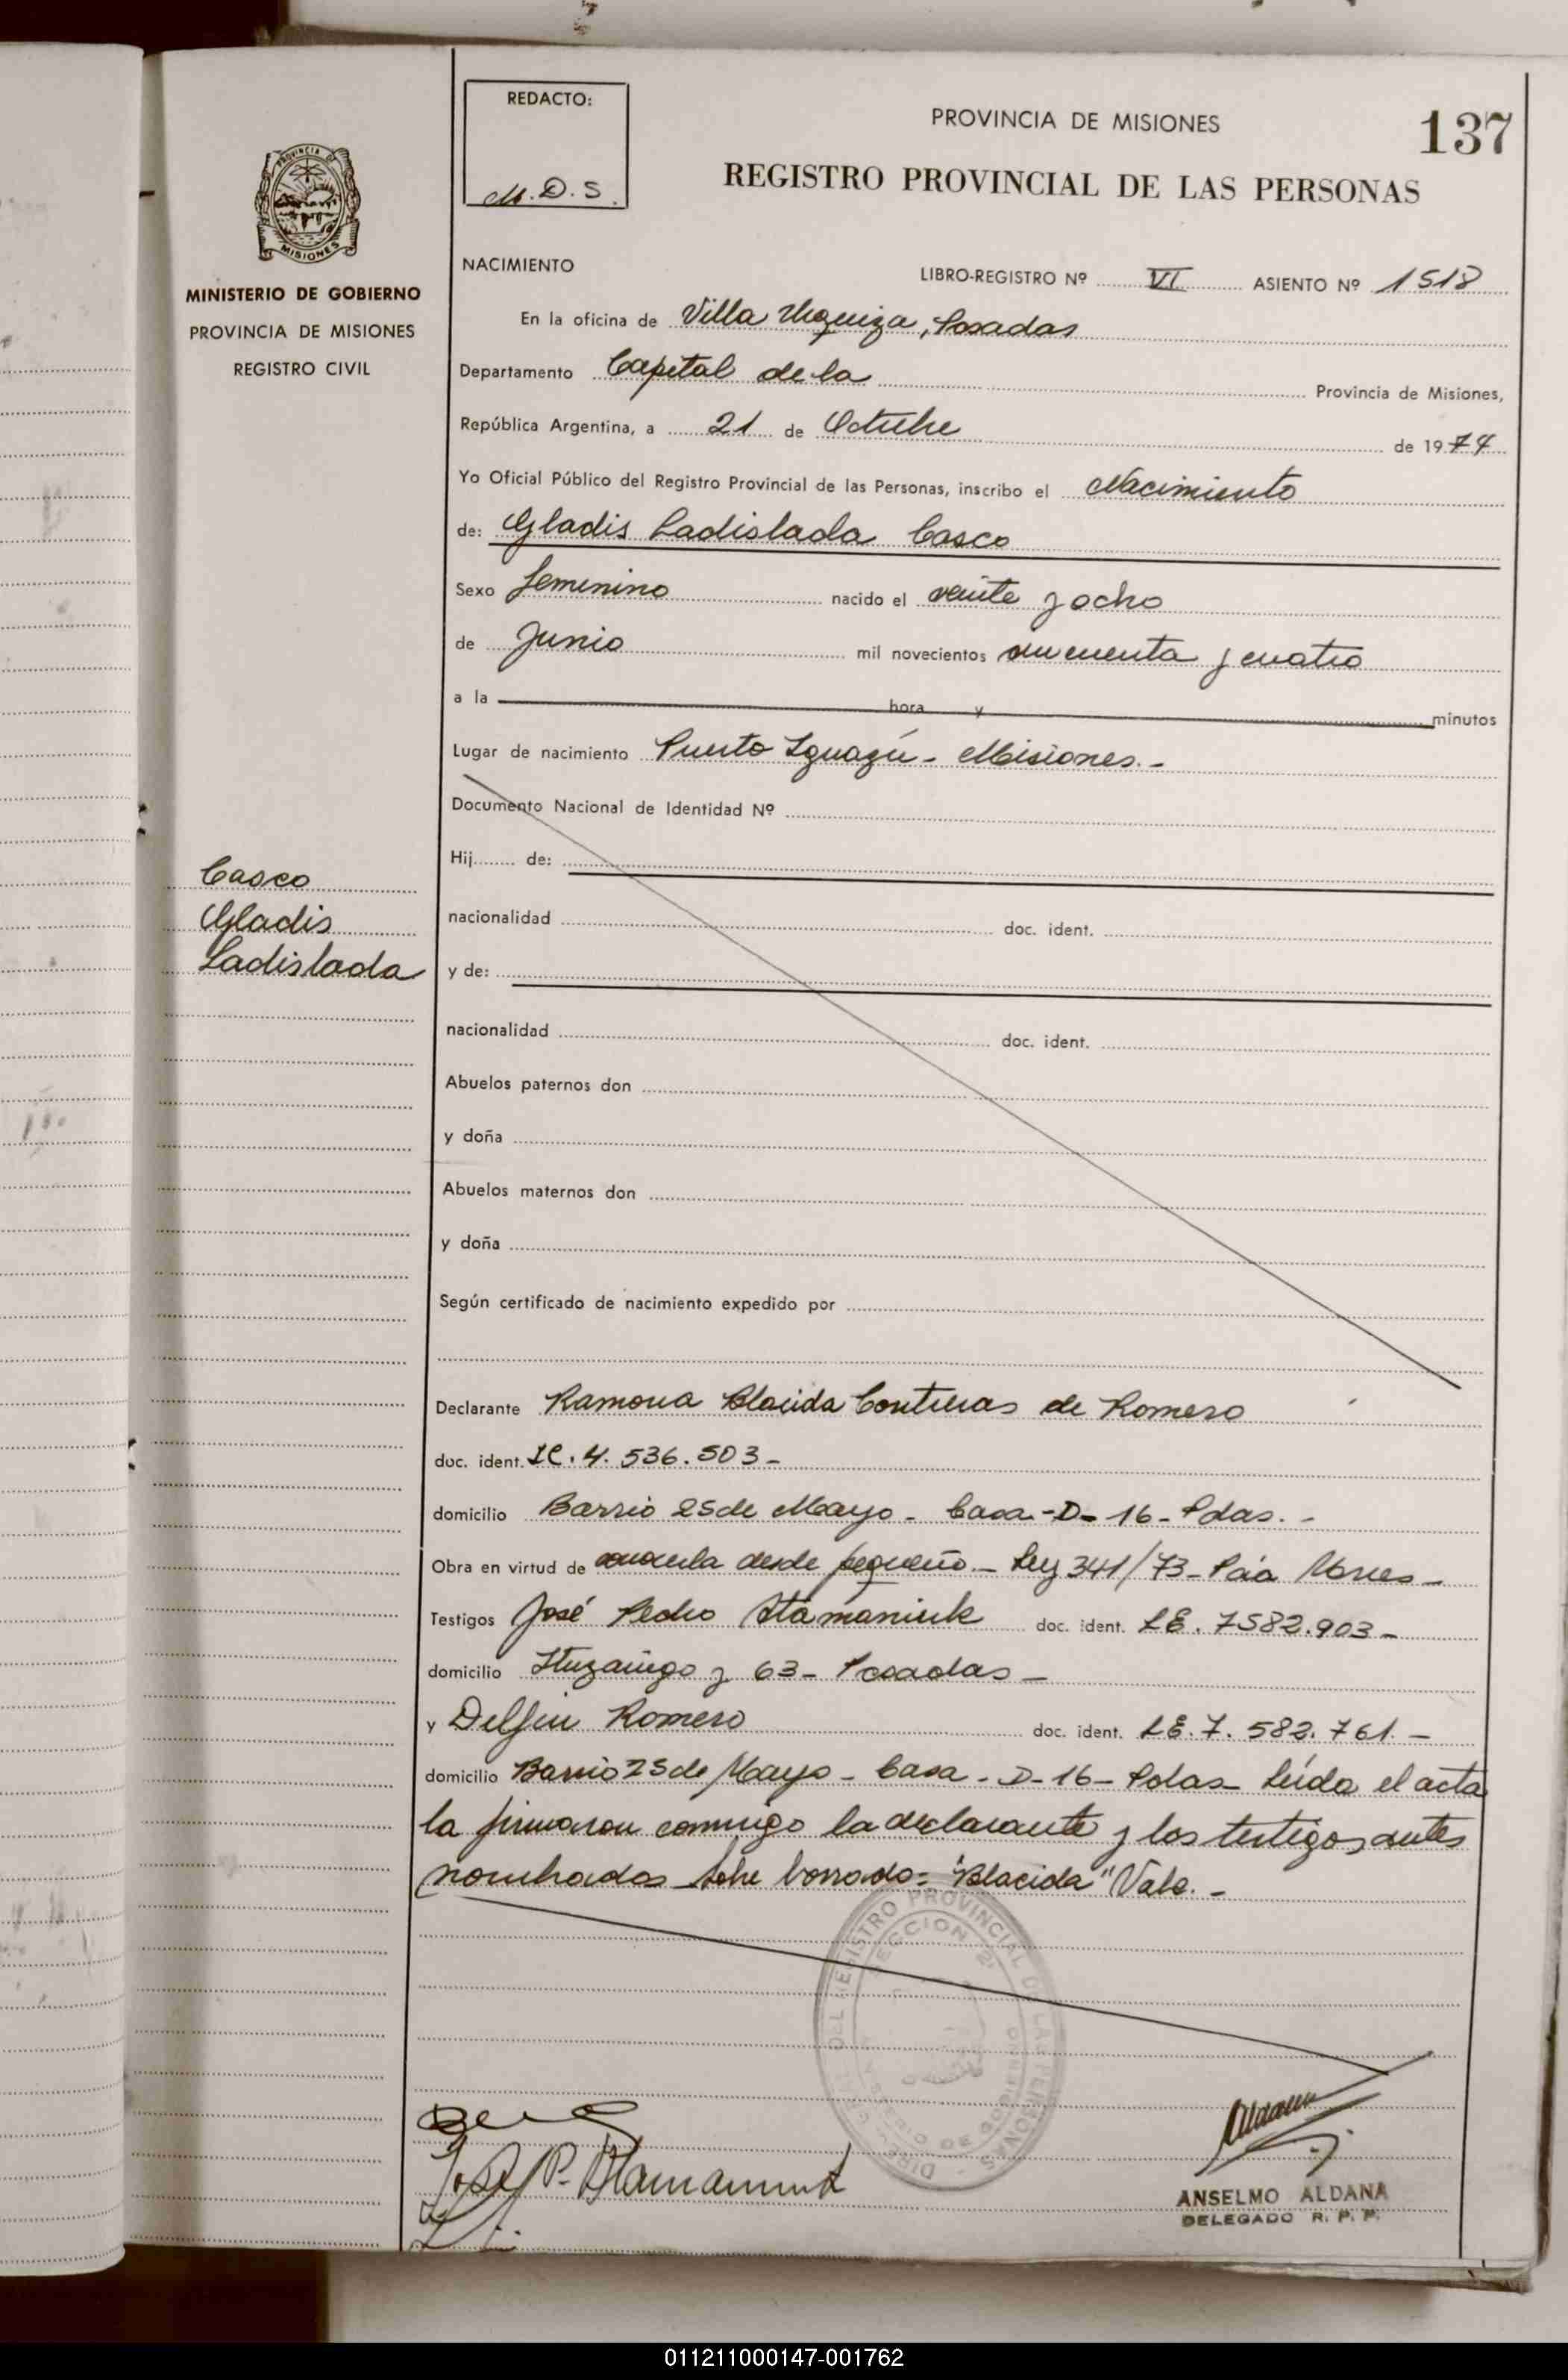 REDACTO:
M.D.S.
PROVINCIA DE MISIONES
137
REGISTRO PROVINCIAL DE LAS PERSONAS
PROVINCIA DE
MISIONES
MINISTERIO DE GOBIERNO
PROVINCIA DE MISIONES
REGISTRO CIVIL
NACIMIENTO
LIBRO-REGISTRO Nº VI ASIENTO Nº 1518
En la oficina de Villa Urquiza, Posadas
Departamento Capital de la Provincia de Misiones,
República Argentina, a 21 de Octubre de 1974
Yo Oficial Público del Registro Provincial de las Personas, inscribo el Nacimiento
de: Gladis Ladislada Casco
Sexo femenino nacido el veinte y ocho
de Junio mil novecientos cincuenta y cuatro
a la hora y minutos
Lugar de nacimiento Puerto Iguazú - Misiones.-
Documento Nacional de Identidad Nº
Hij de:
Casco
Gladis
Ladislada
nacionalidad doc. ident.
y de:
nacionalidad doc. ident.
Abuelos paternos don
y doña
Abuelos maternos don
y doña
Según certificado de nacimiento expedido por
Declarante Ramona Blacida Contreras de Romero
doc. ident. LC. 4.536.503-
domicilio Barrio 25 de Mayo - Casa -D- 16 - Pdas. -
Obra en virtud de conocerla desde pequeño.- Ley 341/73-
Testigos José Pedro Atamaniuk doc. ident. LE. 7582.903-
domicilio Ituzaingo y 63- Posadas-
y Delfin Romero doc. ident. LE. 7. 582. 761. -
domicilio Barrio 25 de Mayo - Casa - D- 16 - Pdas- Leída el acta
la firmaron conmigo la declarante y los testigos antes
nombrados Sobre borrado: "Blacida" Vale. -
Aldana
José P. Atamaniuk
ANSELMO ALDANA
DELEGADO R. P. P.
011211000147-001762